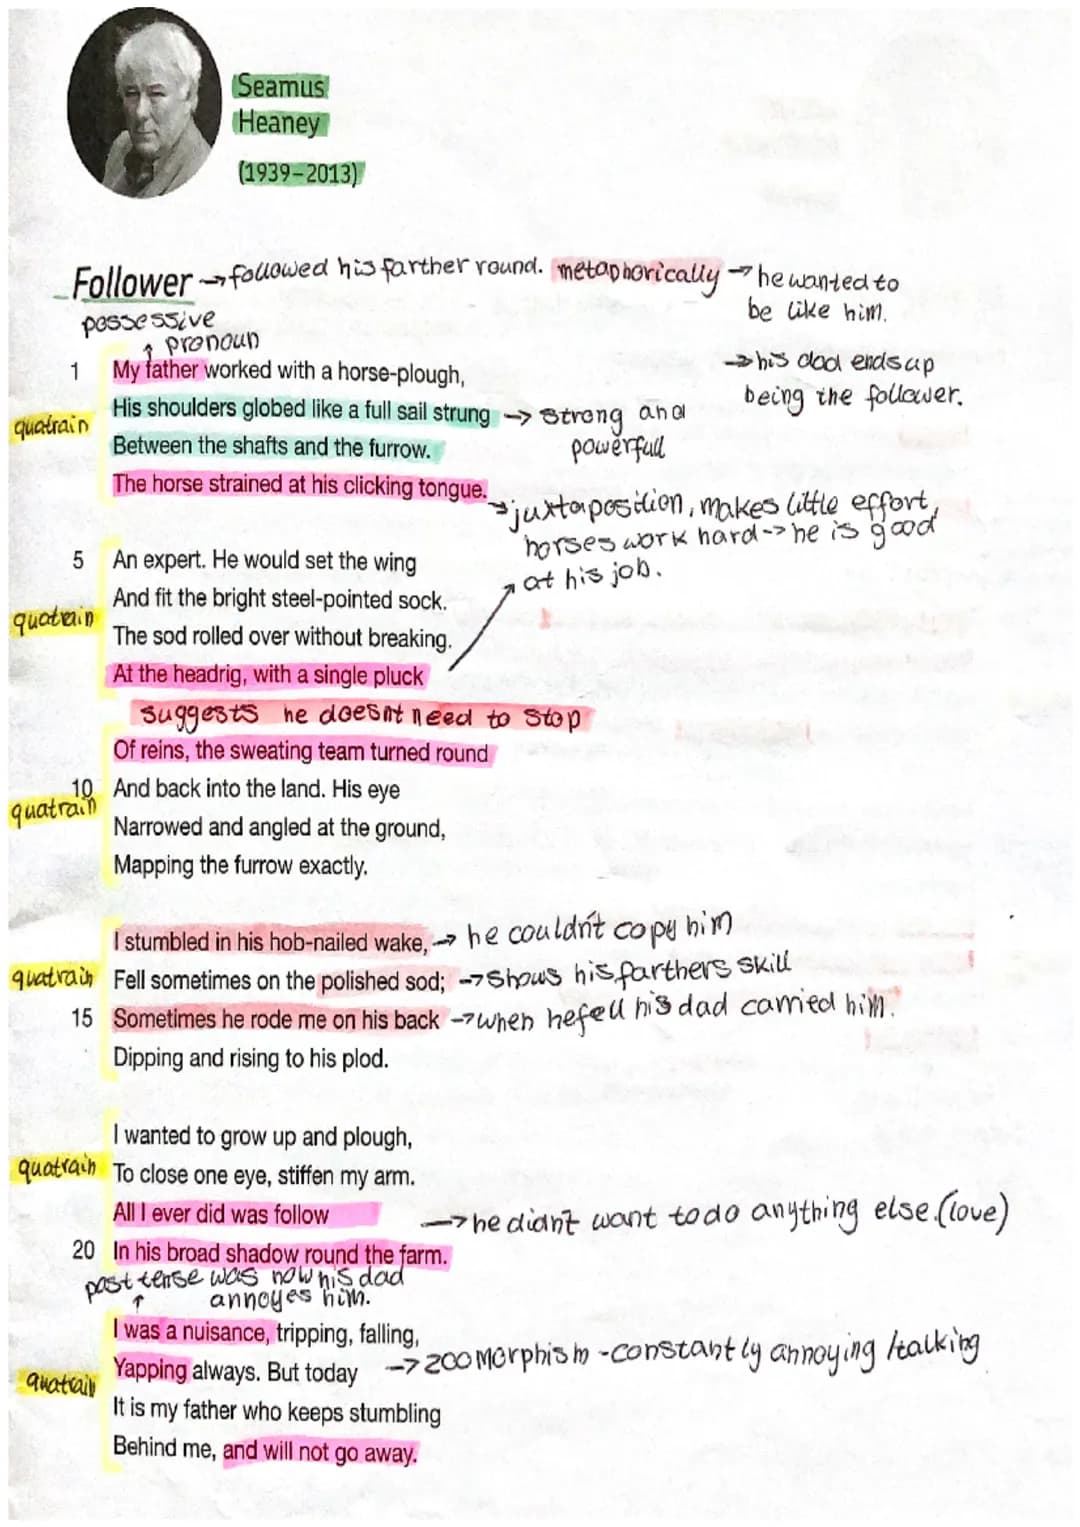 Seamus
Heaney
(1939–2013)
Follower → followed his farther round. metaphorically → he wanted to
be like him.
possessive
↑ pronoun
→ his dad ends up
being the follower.
1 My father worked with a horse-plough,
quatrain His shoulders globed like a full sail strung → strong and
powerfull
Between the shafts and the furrow.
The horse strained at his clicking tongue.
→ juxtaposition, makes little effort,
horses work hard -> he is good
at his job.
5 An expert. He would set the wing
quatrain And fit the bright steel-pointed sock.
The sod rolled over without breaking.
At the headrig, with a single pluck
suggests he doesnt need to stop
Of reins, the sweating team turned round
10 And back into the land. His eye
quatrain Narrowed and angled at the ground,
Mapping the furrow exactly.
I stumbled in his hob-nailed wake, → he couldn't copy him
quatrain Fell sometimes on the polished sod; → shows his farthers skill
15 Sometimes he rode me on his back → when he fell his dad carried him.
Dipping and rising to his plod.
I wanted to grow up and plough,
quatrain To close one eye, stiffen my arm.
All I ever did was follow → he didn't want to do anything else. (love)
20 In his broad shadow round the farm.
past tense was now his dad
↑ annoyes him.
I was a nuisance, tripping, falling,
quatrain Yapping always. But today → zoomorphism - constantly annoying / talking
It is my father who keeps stumbling
Behind me, and will not go away.